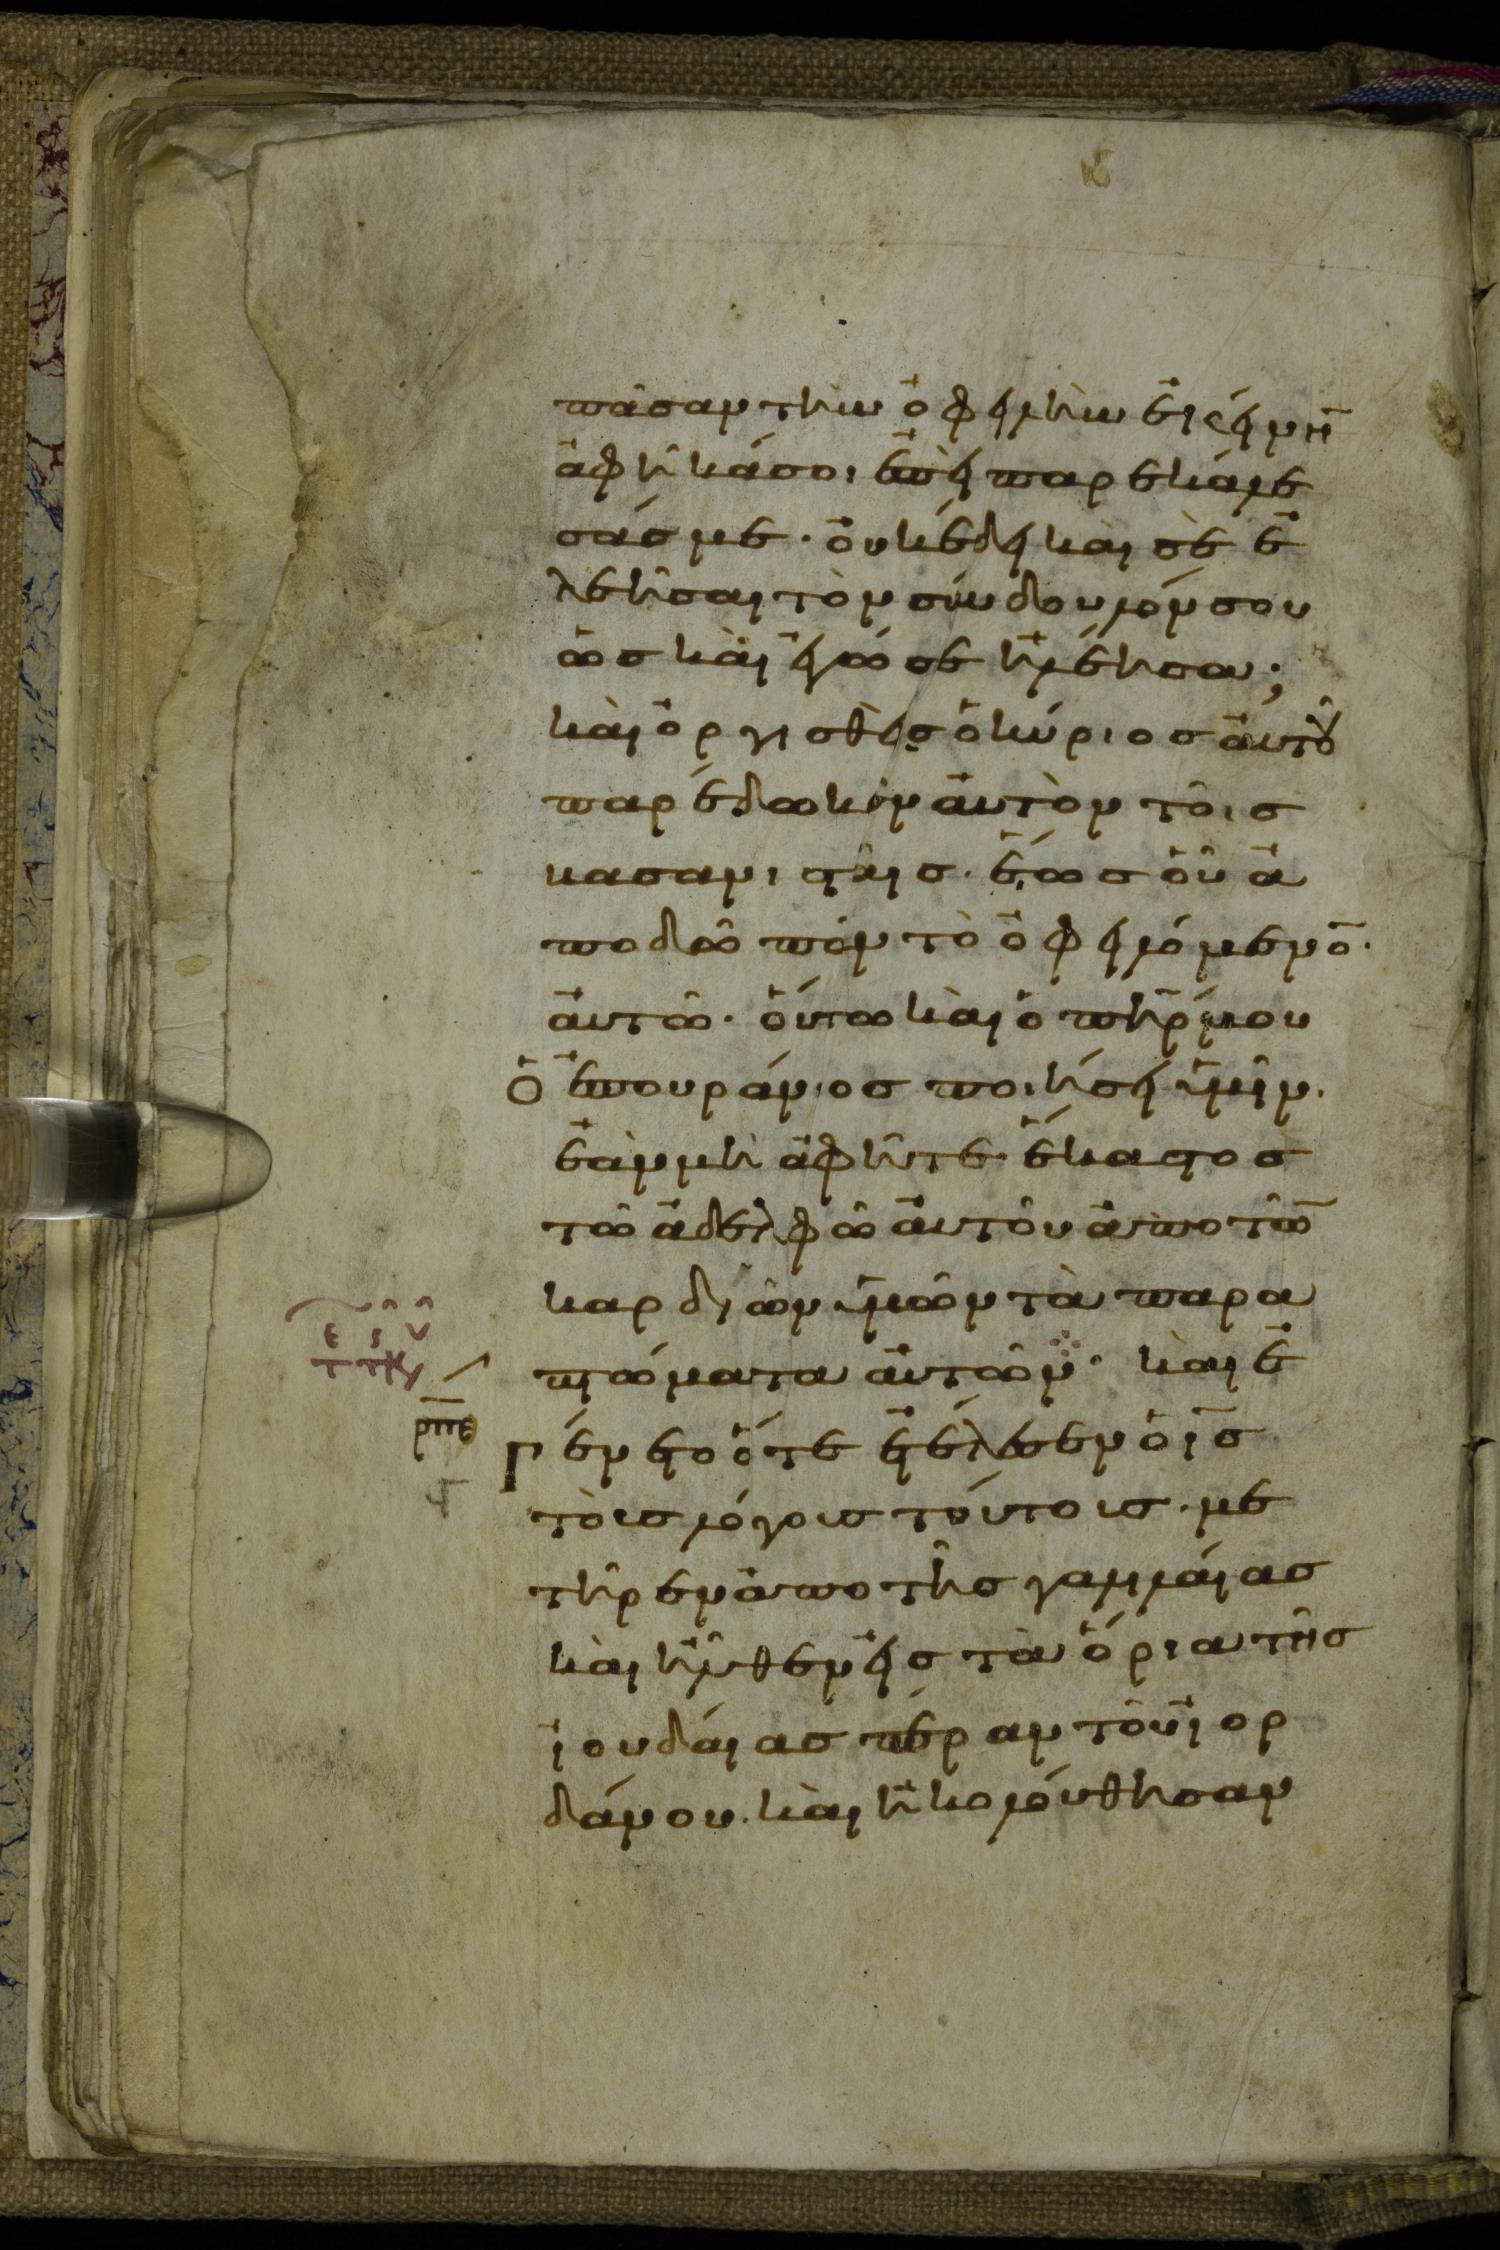 πᾶσαν τὴν ὀφειλὴν ἐκείνη̄
ἀφῆκά σοι ἐπεὶ παρεκάλε
σάς με. οὐκ ἔδει καὶ σὲ ἐ
λεῆσαι τὸν σύνδουλόν σου
ὡς καὶ ἐγώ σε ἠλέησα;
καὶ ὀργισθεὶς ὁ κύριος αὐτοῦ
παρέδωκεν αὐτὸν τοῖς
βασανισταῖς. ἕως οὗ ἀ
ποδῶ πᾶν τὸ ὀφειλόμενο̄.
αὐτῶ. οὕτω καὶ ὁ πη̄ρ μου
ὁ ἐπουράνιος ποιήσει ὑμῖν.
ἐὰν μὴ ἀφῆτε ἕκαστος
τῶ ἀδελφῶ αὐτοῦ ἀπὸ τῶ̄
καρδιῶν ὑμῶν τὰ παρα
πτώματα αὐτῶν. καὶ ἐ
γένετο ὅτε ἐτέλεσεν ὁ ῑς
τοὺς λόγους τούτους. με
τῆρεν ἀπὸ τῆς γαλιλαίας
καὶ ἦλθεν εἰς τὰ ὅρια τῆς
ἰουδαίας πέραν τοῦ ἰορ
δάνου. καὶ ἠκολούθησαν